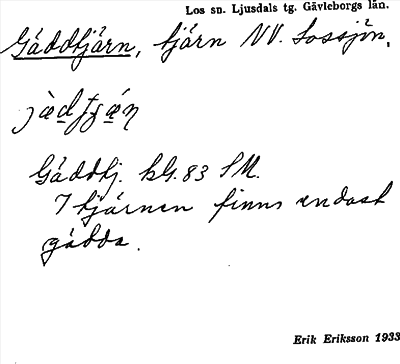 Los sn. Ljusdals tg. Gävleborgs län.
Gäddtjärn, tjärn NV. Lossjön,
Gäddtj. bl. 83 SM.
I tjärnen finns endast
gädda.
Erik Eriksson 1933